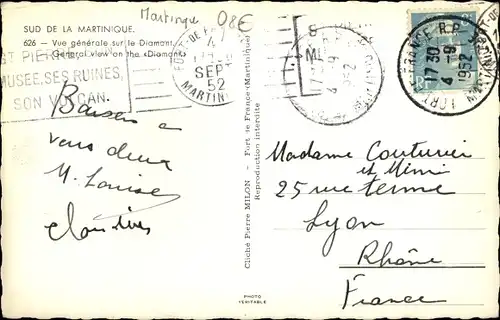 Martinique 08€
SUD DE LA MARTINIQUE.
626 - Vue générale sur le Diamant.
General view on the «Diamant»
ST PIERRE
MUSEE, SES RUINES,
SON VOLCAN.
FORT-DE-F
4
SEP
52
MARTINI
4 -9
1952
FORT DE FRANCE R.P.
17 30
4 -9
1952
MARTINIQUE
Baisers a
vous deux
M. Louise
Cliché Pierre MILON - Fort de France (Martinique)
Reproduction interdite
PHOTO
VERITABLE
Madame Couturier
et Mimi
25 rue terme
Lyon
Rhône
France